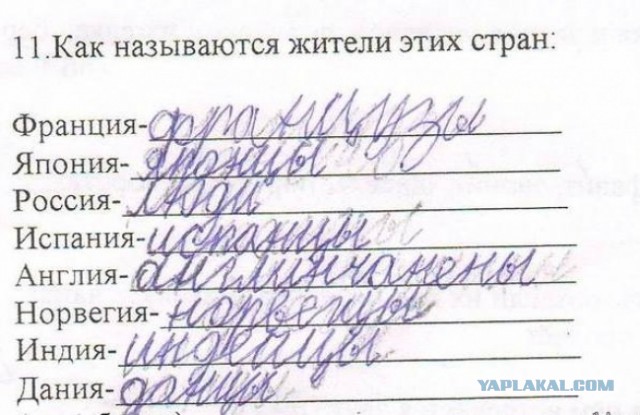 11.Как называются жители этих стран:
Франция- французы
Япония- японцы
Россия- люди
Испания- испанцы
Англия- англинчанены
Норвегия- норвегцы
Индия- индейцы
Дания- данцы
YAPLAKAL.COM